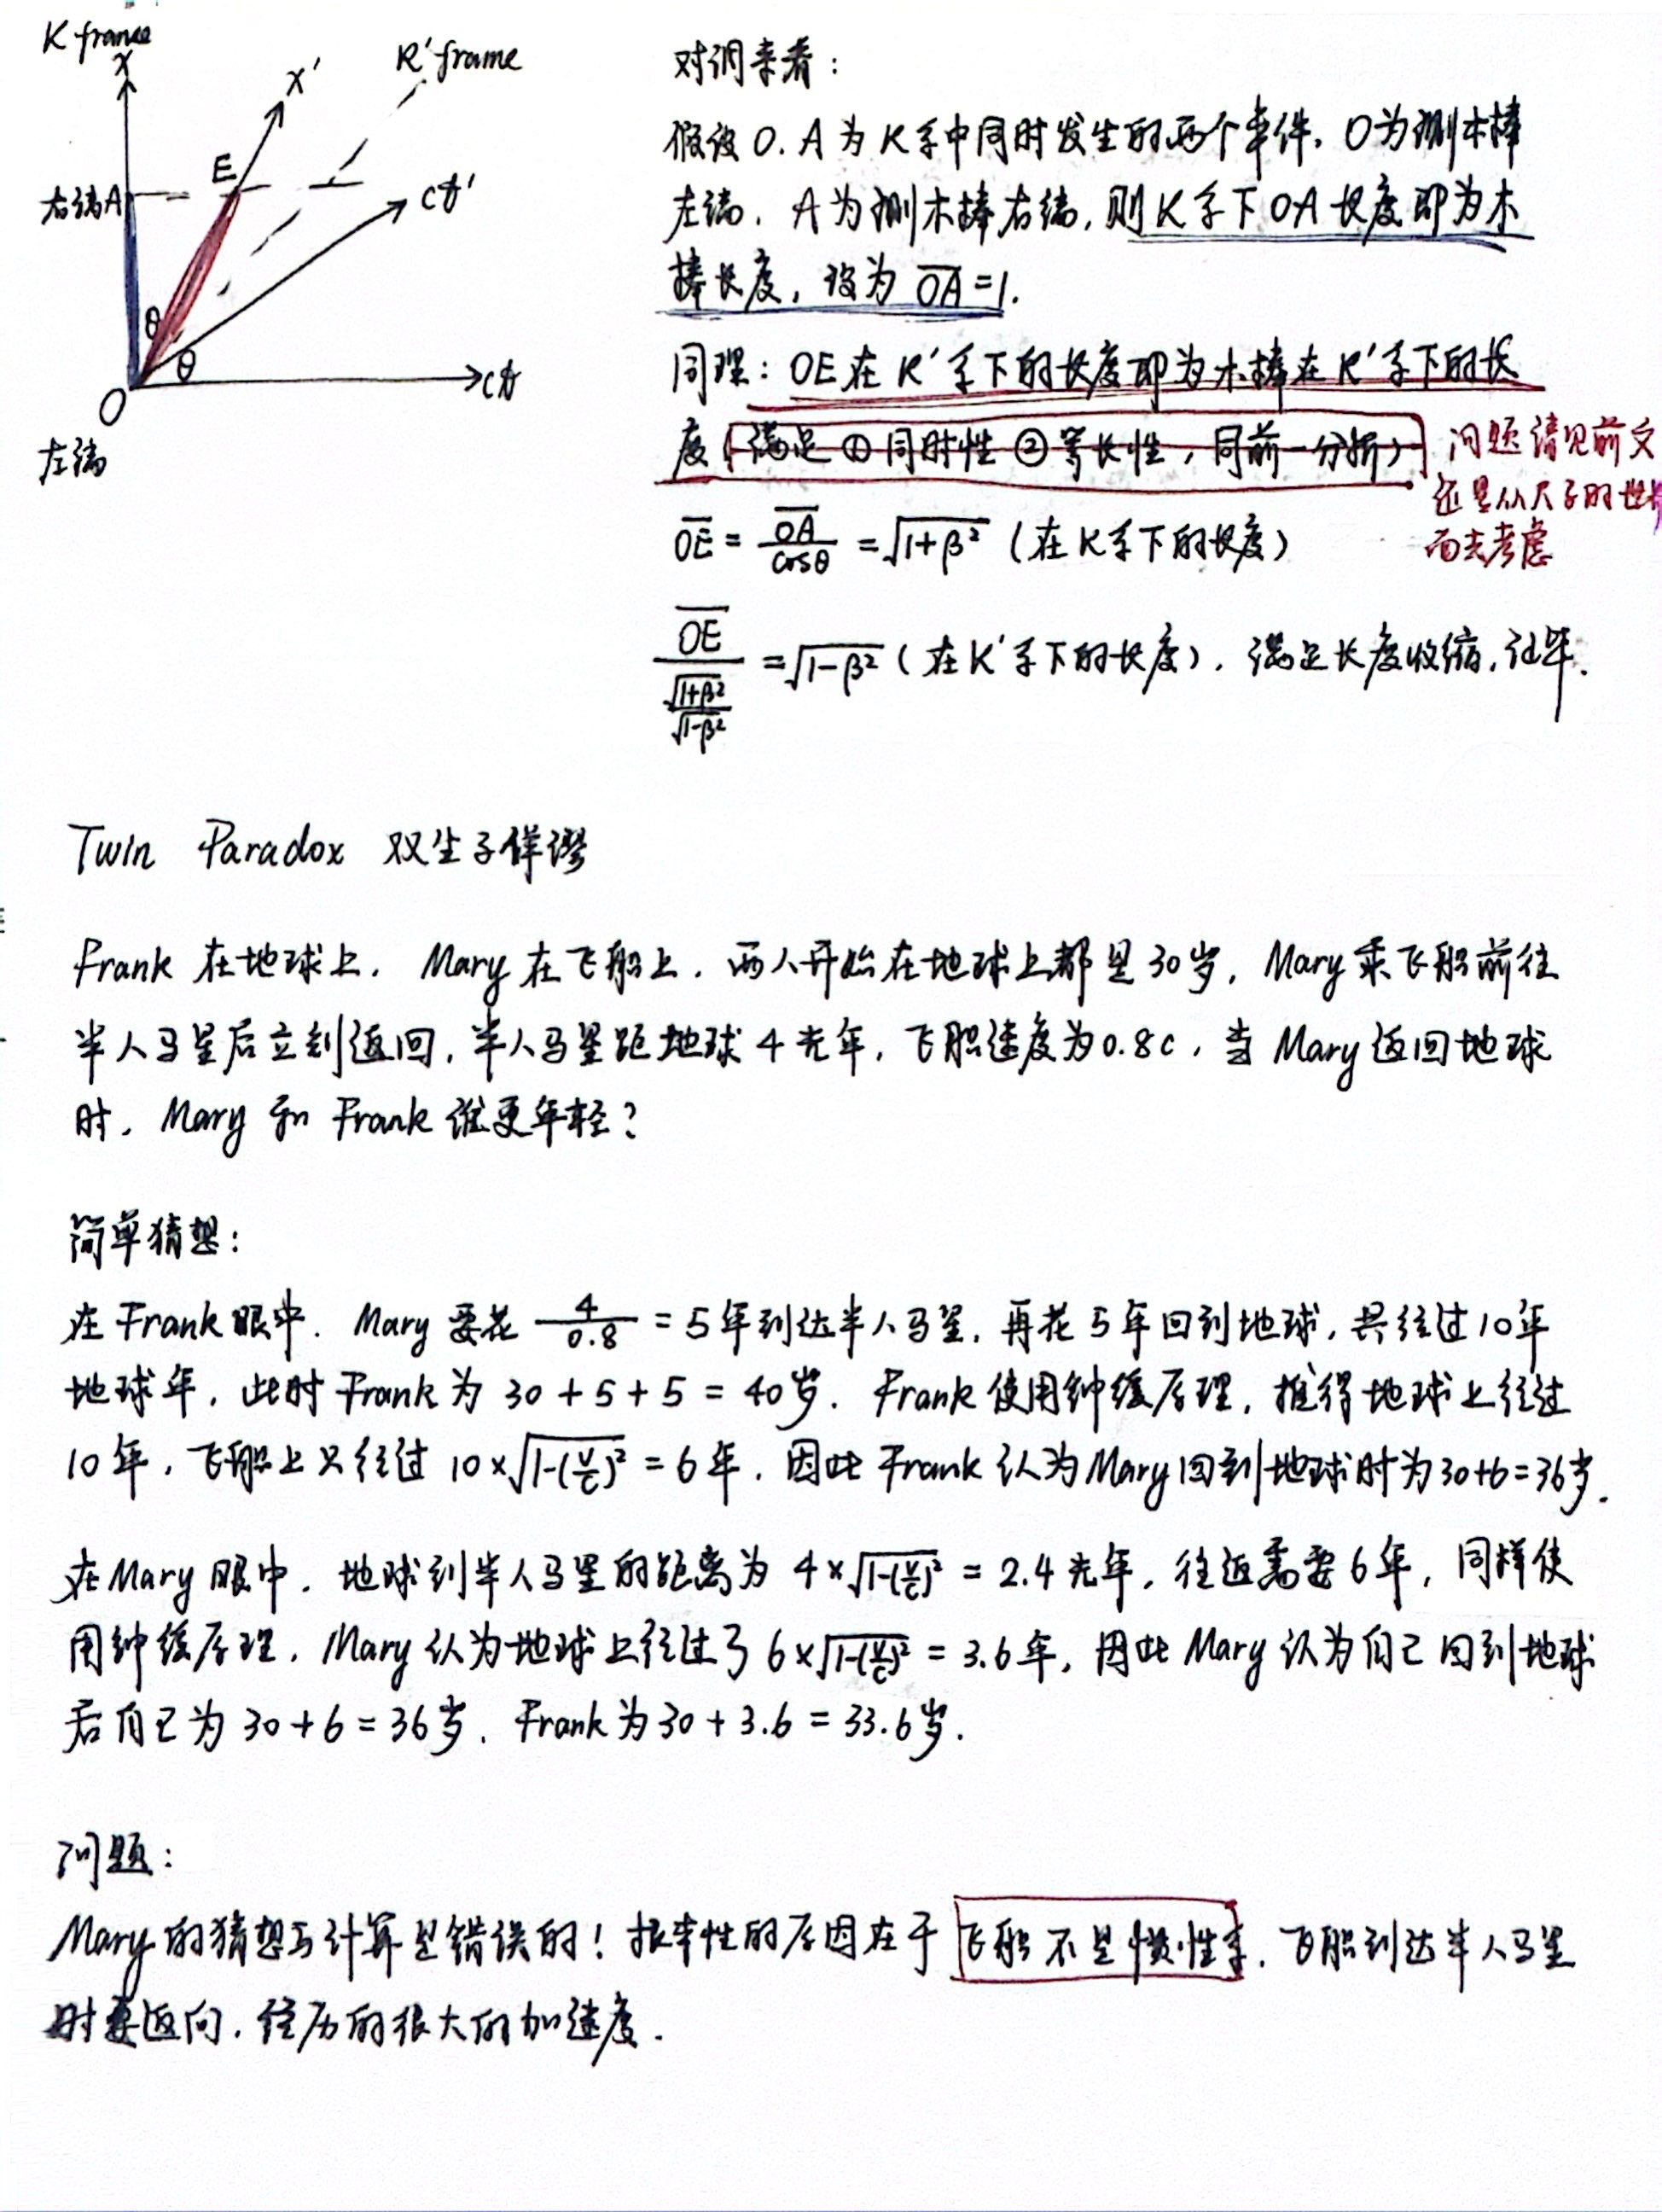 K frame
x
x'
K' frame
E
右端A
ct'
θ
θ
ct
O
左端
对调来看：
假设O.A为K系中同时发生的两个事件，O为测木棒
左端，A为测木棒右端，则K系下OA长度即为木
棒长度，设为 OA=1.
同理：OE在K'系下的长度即为木棒在K'系下的长
度（满足①同时性②等长性，同前一分析）
问题请见前文
还是从尺子的世界
面去考虑
OE = OA/cosθ = √1+β² (在K系下的长度)
OE/(√1+β²/√1-β²) = √1-β² (在K'系下的长度), 满足长度收缩, 证毕.
Twin Paradox 双生子佯谬
Frank 在地球上, Mary 在飞船上, 两人开始在地球上都是30岁, Mary乘飞船前往
半人马星后立刻返回, 半人马星距地球4光年, 飞船速度为0.8c, 当Mary返回地球
时, Mary 和 Frank 谁更年轻？
简单猜想：
在Frank眼中, Mary 要花 4/0.8 = 5年到达半人马星, 再花5年回到地球, 共经过10年
地球年, 此时Frank为 30 + 5 + 5 = 40岁. Frank使用钟缓原理, 推得地球上经过
10年, 飞船上只经过 10×√1-(v/c)² = 6年, 因此Frank认为Mary回到地球时为30+6=36岁.
在Mary眼中, 地球到半人马星的距离为 4×√1-(v/c)² = 2.4光年, 往返需要6年, 同样使
用钟缓原理, Mary认为地球上经过了 6×√1-(v/c)² = 3.6年, 因此Mary认为自己回到地球
后自己为 30 + 6 = 36岁, Frank为 30 + 3.6 = 33.6岁.
问题：
Mary的猜想与计算是错误的！根本性的原因在于飞船不是惯性系, 飞船到达半人马星
时要返向, 经历的很大的加速度.